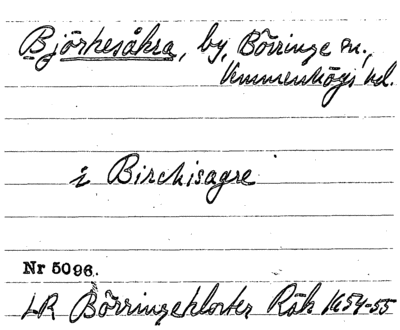 Björkesåkra, by, Börringe sn.,
Vemmenhögs hd.
i Birckisagre
Nr 5096.
LR Börringekloster Räk 1654-55